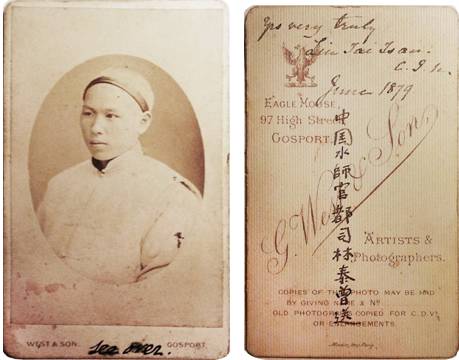 WEST & SON.
GOSPORT.
see over.
Yrs very truly
Lin Tai Tsan.
C. I. N.
June 1879
EAGLE HOUSE,
97 High Street
GOSPORT.
G. West & Son,
ARTISTS &
Photographers.
中国水師官都司林泰曾送
COPIES OF THE PHOTO MAY BE HAD
BY GIVING NAME & No
OLD PHOTOGRAPHS COPIED FOR C.D.V.
OR ENLARGEMENTS.